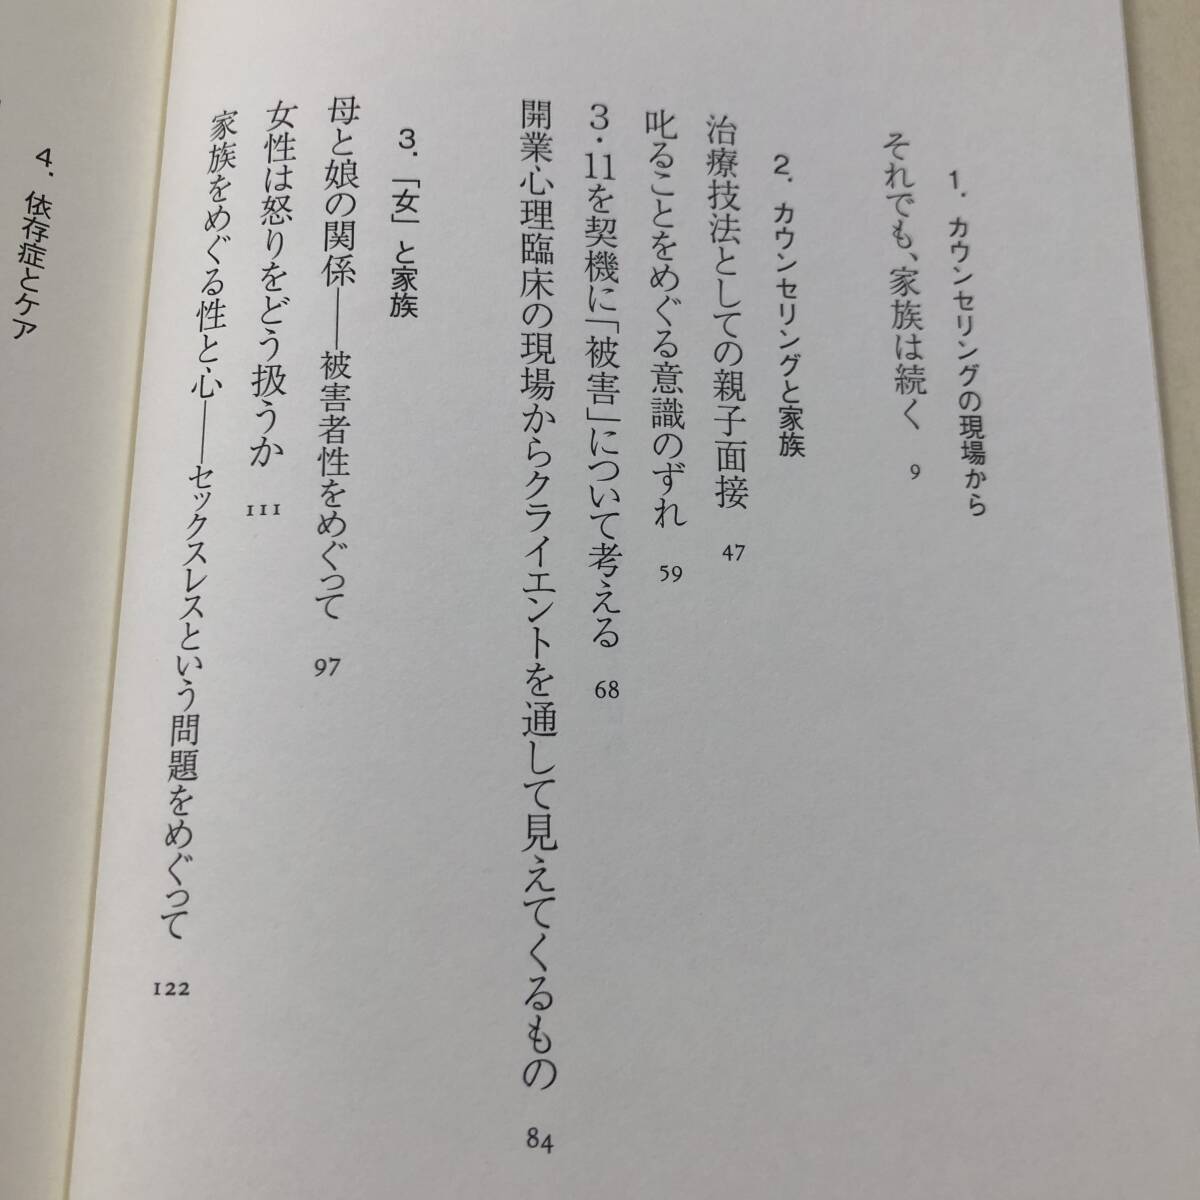 1. カウンセリングの現場から
それでも、家族は続く 9
2. カウンセリングと家族
治療技法としての親子面接 47
叱ることをめぐる意識のずれ 59
3・11を契機に「被害」について考える 68
開業心理臨床の現場からクライエントを通して見えてくるもの 84
3. 「女」と家族
母と娘の関係――被害者性をめぐって 97
女性は怒りをどう扱うか 111
家族をめぐる性と心――セックスレスという問題をめぐって 122
4. 依存症とケア